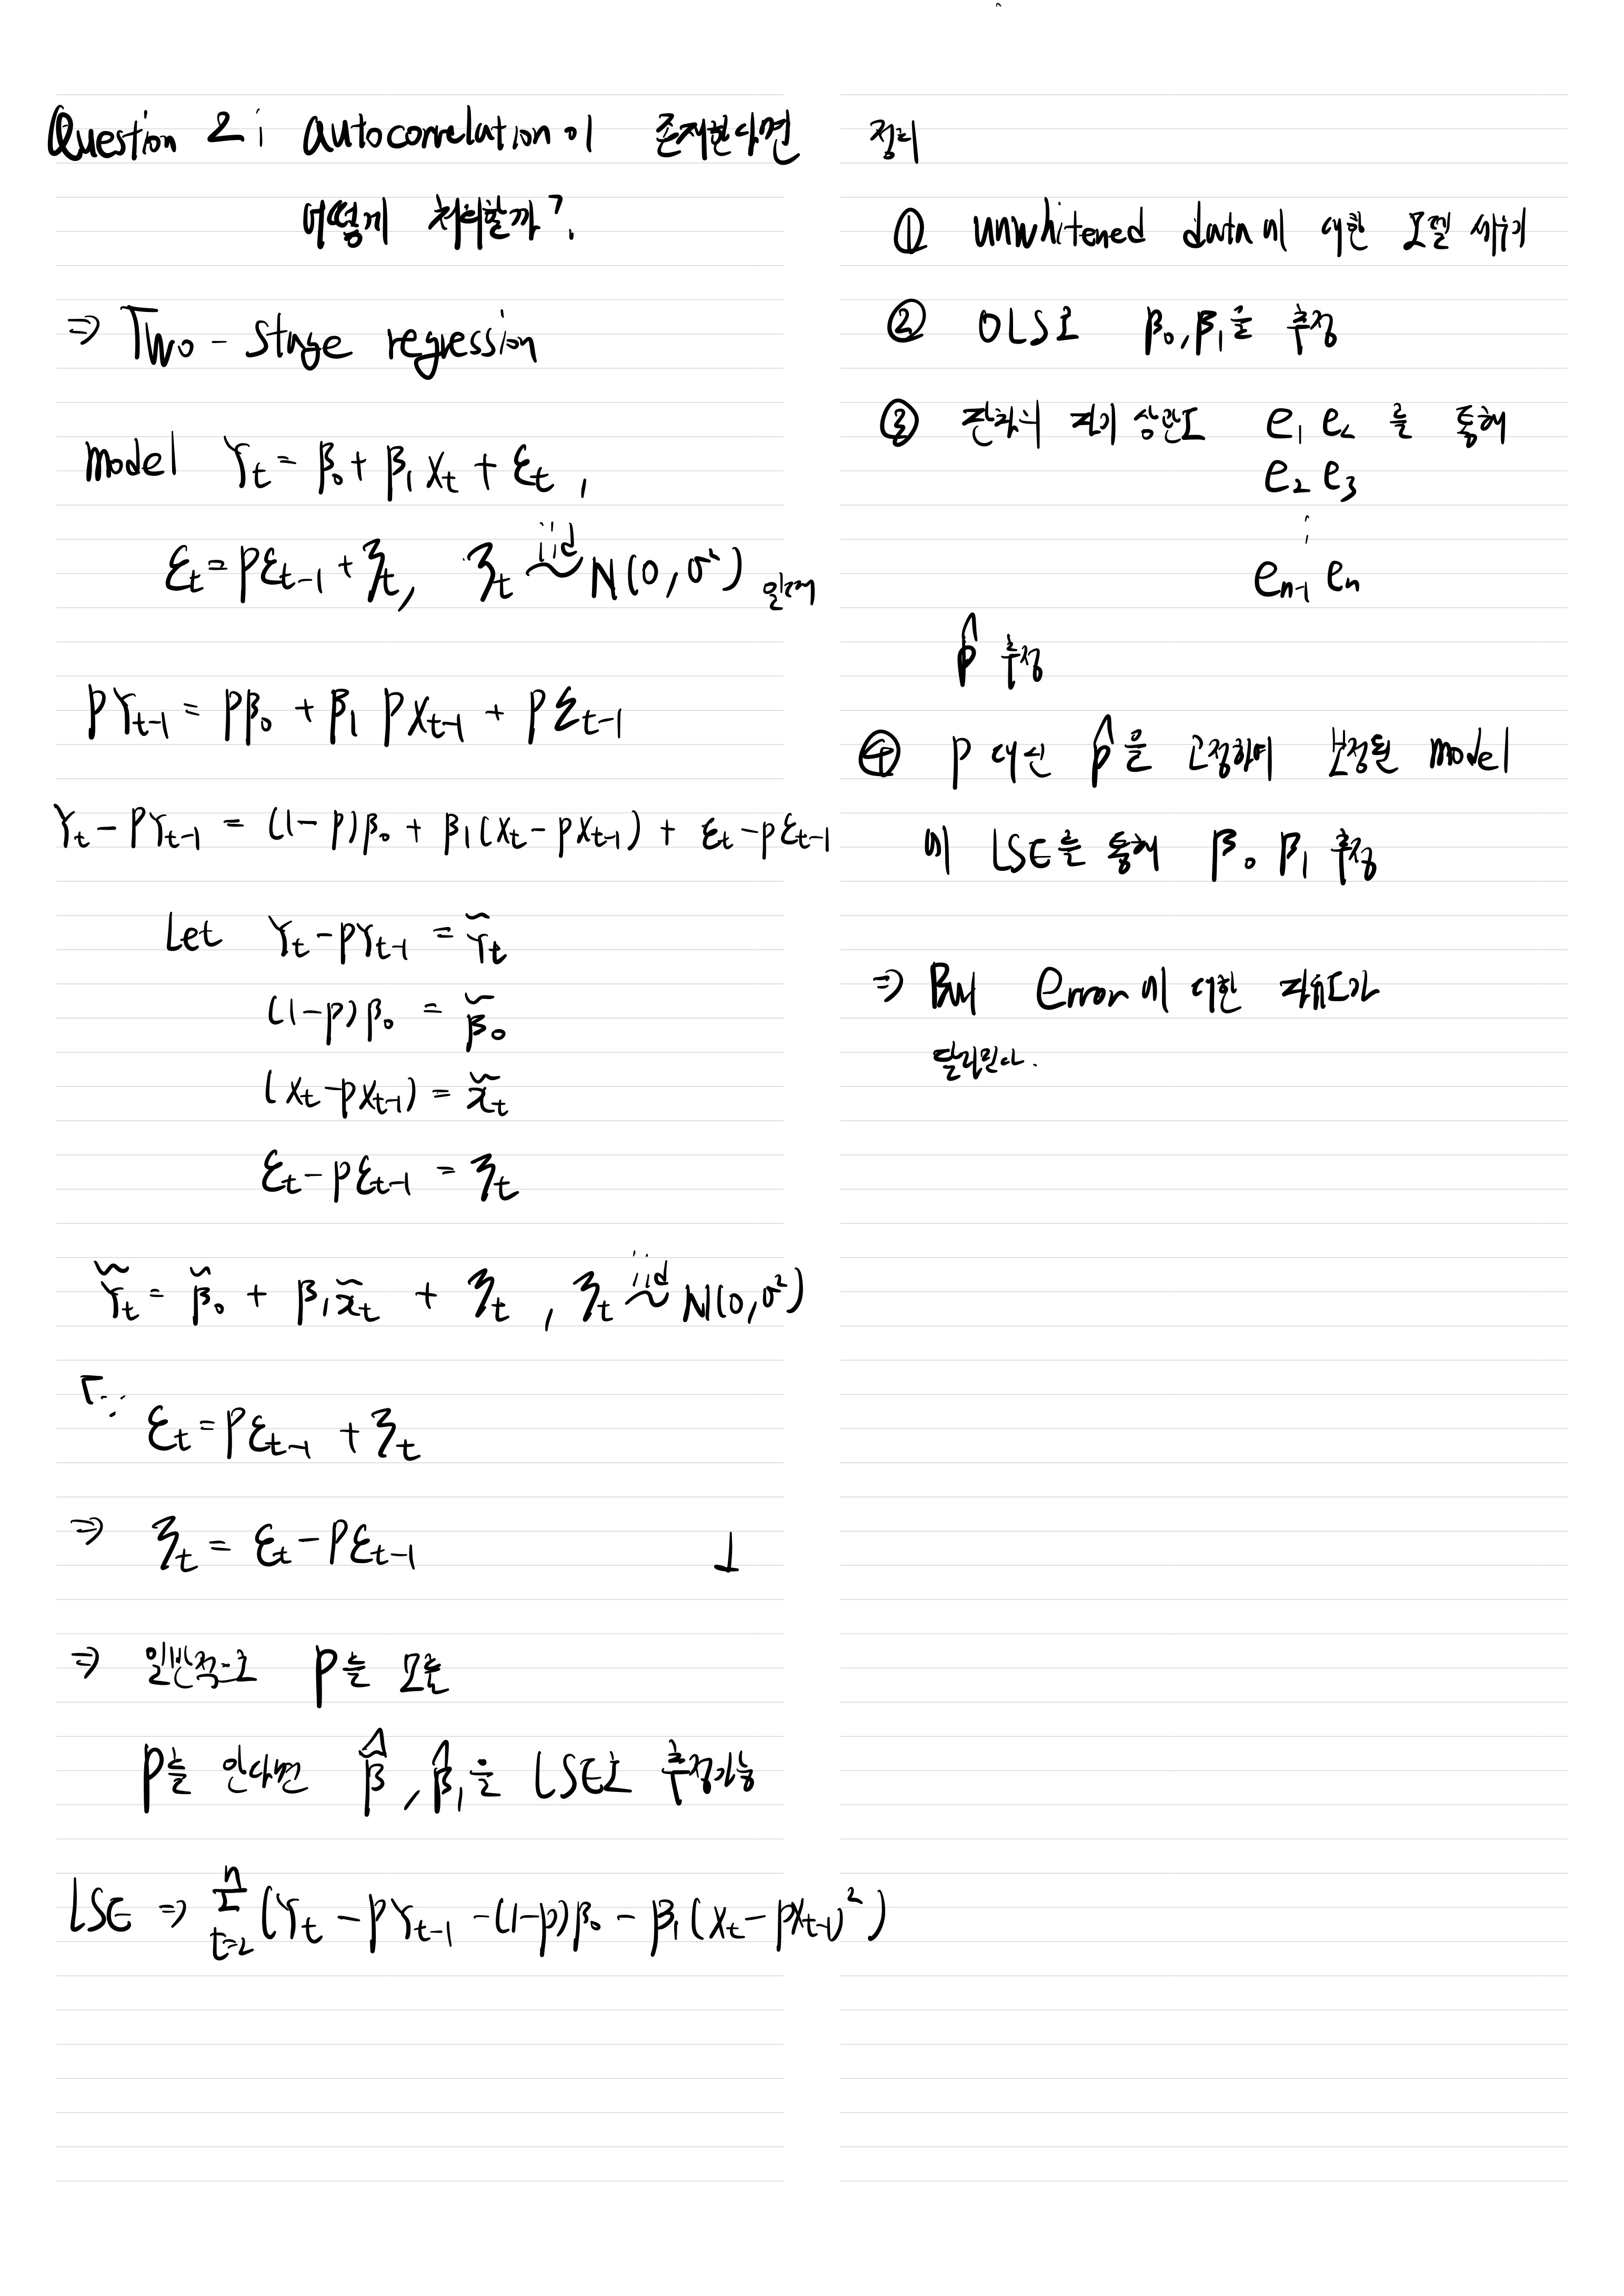 Question 2 : autocorrelation이 존재한다면
어떻게 처리할까?
⇒ Two - stage regression
model Y_t = β_0 + β_1 X_t + ε_t ,
ε_t = ρε_{t-1} + ξ_t, ξ_t iid ~ N(0, σ²) 일때
ρY_{t-1} = ρβ_0 + β_1 ρX_{t-1} + ρε_{t-1}
Y_t - ρY_{t-1} = (1-ρ)β_0 + β_1(X_t - ρX_{t-1}) + ε_t - ρε_{t-1}
Let Y_t - ρY_{t-1} = Ỹ_t
(1-ρ)β_0 = β̃_0
(X_t - ρX_{t-1}) = x̃_t
ε_t - ρε_{t-1} = ξ_t
Ỹ_t = β̃_0 + β_1 x̃_t + ξ_t , ξ_t iid ~ N(0, σ²)
「∵ ε_t = ρε_{t-1} + ξ_t
⇒ ξ_t = ε_t - ρε_{t-1} 」
⇒ 일반적으로 ρ를 모름
ρ를 안다면 β̂, β̂_1을 LSE로 추정가능
LSE ⇒ Σ_{t=2}^{n} (Y_t - ρY_{t-1} - (1-ρ)β_0 - β_1(X_t - ρX_{t-1})²)
정리
① unwhitened data에 대한 모델 세우기
② OLS로 β_0, β_1을 추정
③ 잔차의 자기 상관도 e_1 e_2 를 통해
e_2 e_3
⋮
e_{n-1} e_n
ρ̂ 추정
④ ρ 대신 ρ̂을 고정하여 보정된 model
에 LSE를 통해 β_0 β_1 추정
⇒ But error에 대한 자유도가
달라진다.